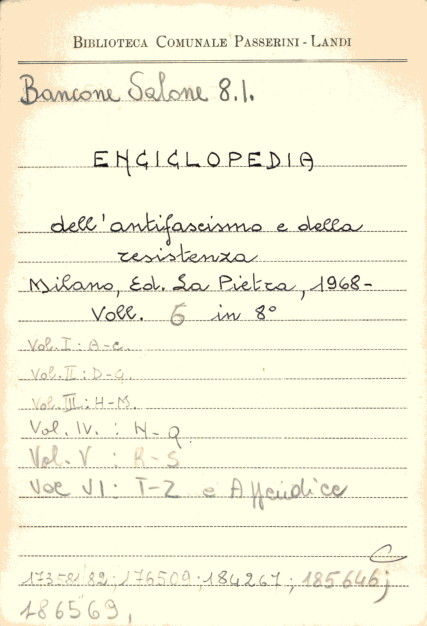 BIBLIOTECA COMUNALE PASSERINI-LANDI
Bancone Salone 8.1.
ENCICLOPEDIA
dell'antifascismo e della
resistenza
Milano, Ed. La Pietra, 1968-
Voll. 6 in 8°
Vol. I: A-C.
Vol. II: D-G.
Vol. III: H-M.
Vol. IV. : N-Q.
Vol. V : R-S
Vol VI: T-Z e Appendice
176509; 184267; 185646;
186569,